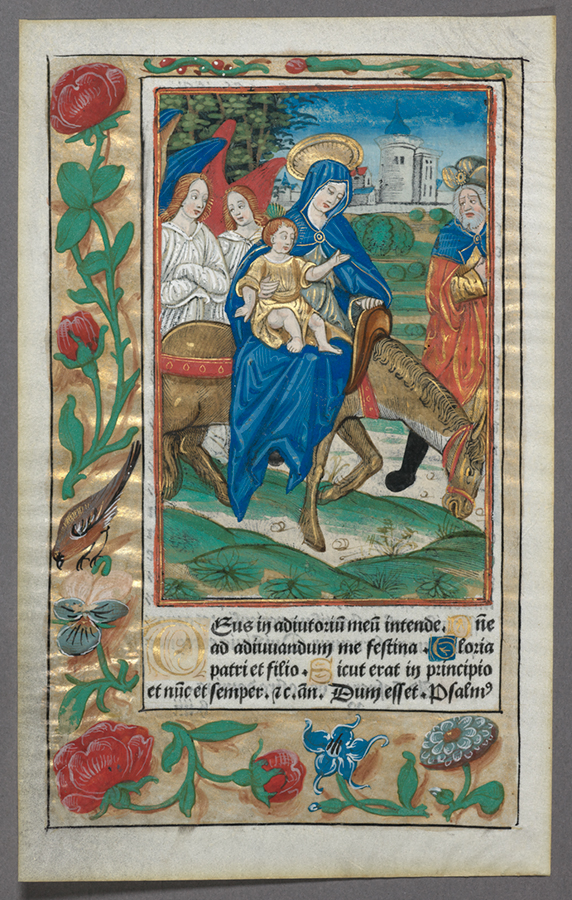 DEus in adiutoriũ meũ intende. Dñe
ad adiuuandum me festina. Gloria
patri et filio. Sicut erat in principio
et nũc et semper. ⁊c. añ. Dum esset. Psalmꝰ